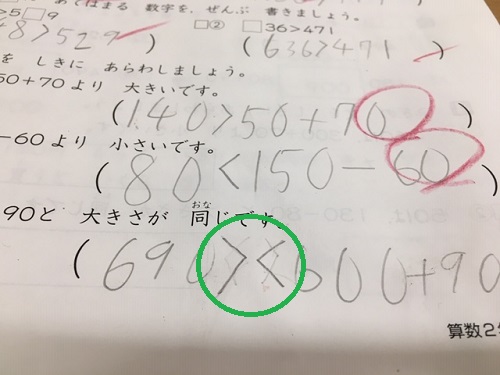 あてはまる 数字を、ぜんぶ 書きましょう。
>5□9 □② □36>471
8>529 ) (636>471 )
を しきに あらわしましょう。
50+70より 大きいです。
(140>50+70 )
-60より 小さいです。
(80<150-60 )
90と 大きさが 同じです。
おな
(690><600+90
算数2